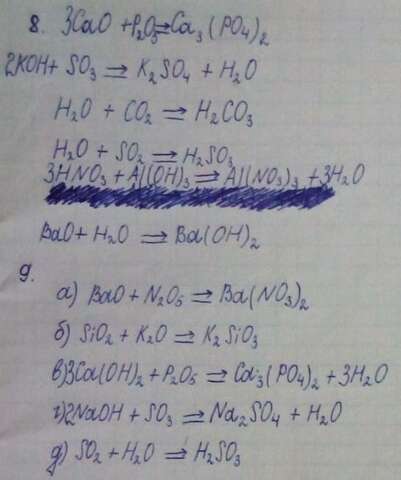 8. 3CaO + P₂O₅ ⇌ Ca₃(PO₄)₂
2KOH + SO₃ ⇌ K₂SO₄ + H₂O
H₂O + CO₂ ⇌ H₂CO₃
H₂O + SO₂ ⇌ H₂SO₃
3HNO₃ + Al(OH)₃ ⇌ Al(NO₃)₃ + 3H₂O
BaO + H₂O ⇌ Ba(OH)₂
9.
а) BaO + N₂O₅ ⇌ Ba(NO₃)₂
б) SiO₂ + K₂O ⇌ K₂SiO₃
в) 3Ca(OH)₂ + P₂O₅ ⇌ Ca₃(PO₄)₂ + 3H₂O
г) 2NaOH + SO₃ ⇌ Na₂SO₄ + H₂O
д) SO₂ + H₂O ⇌ H₂SO₃